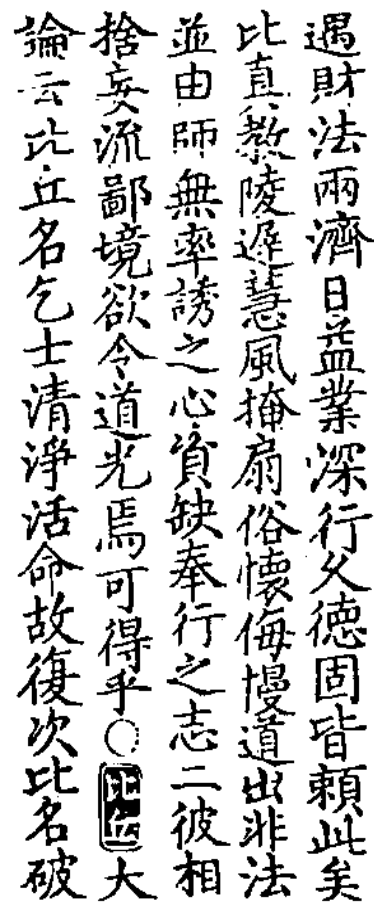 遇財法兩濟日益業深行久德固皆賴此矣
比真教陵遲慧風掩扇俗懷侮慢道出非法
並由師無率誘之心資缺奉行之志二彼相
捨妄流鄙境欲令道光焉可得乎○比丘大
論云比丘名乞士清淨活命故復次比名破